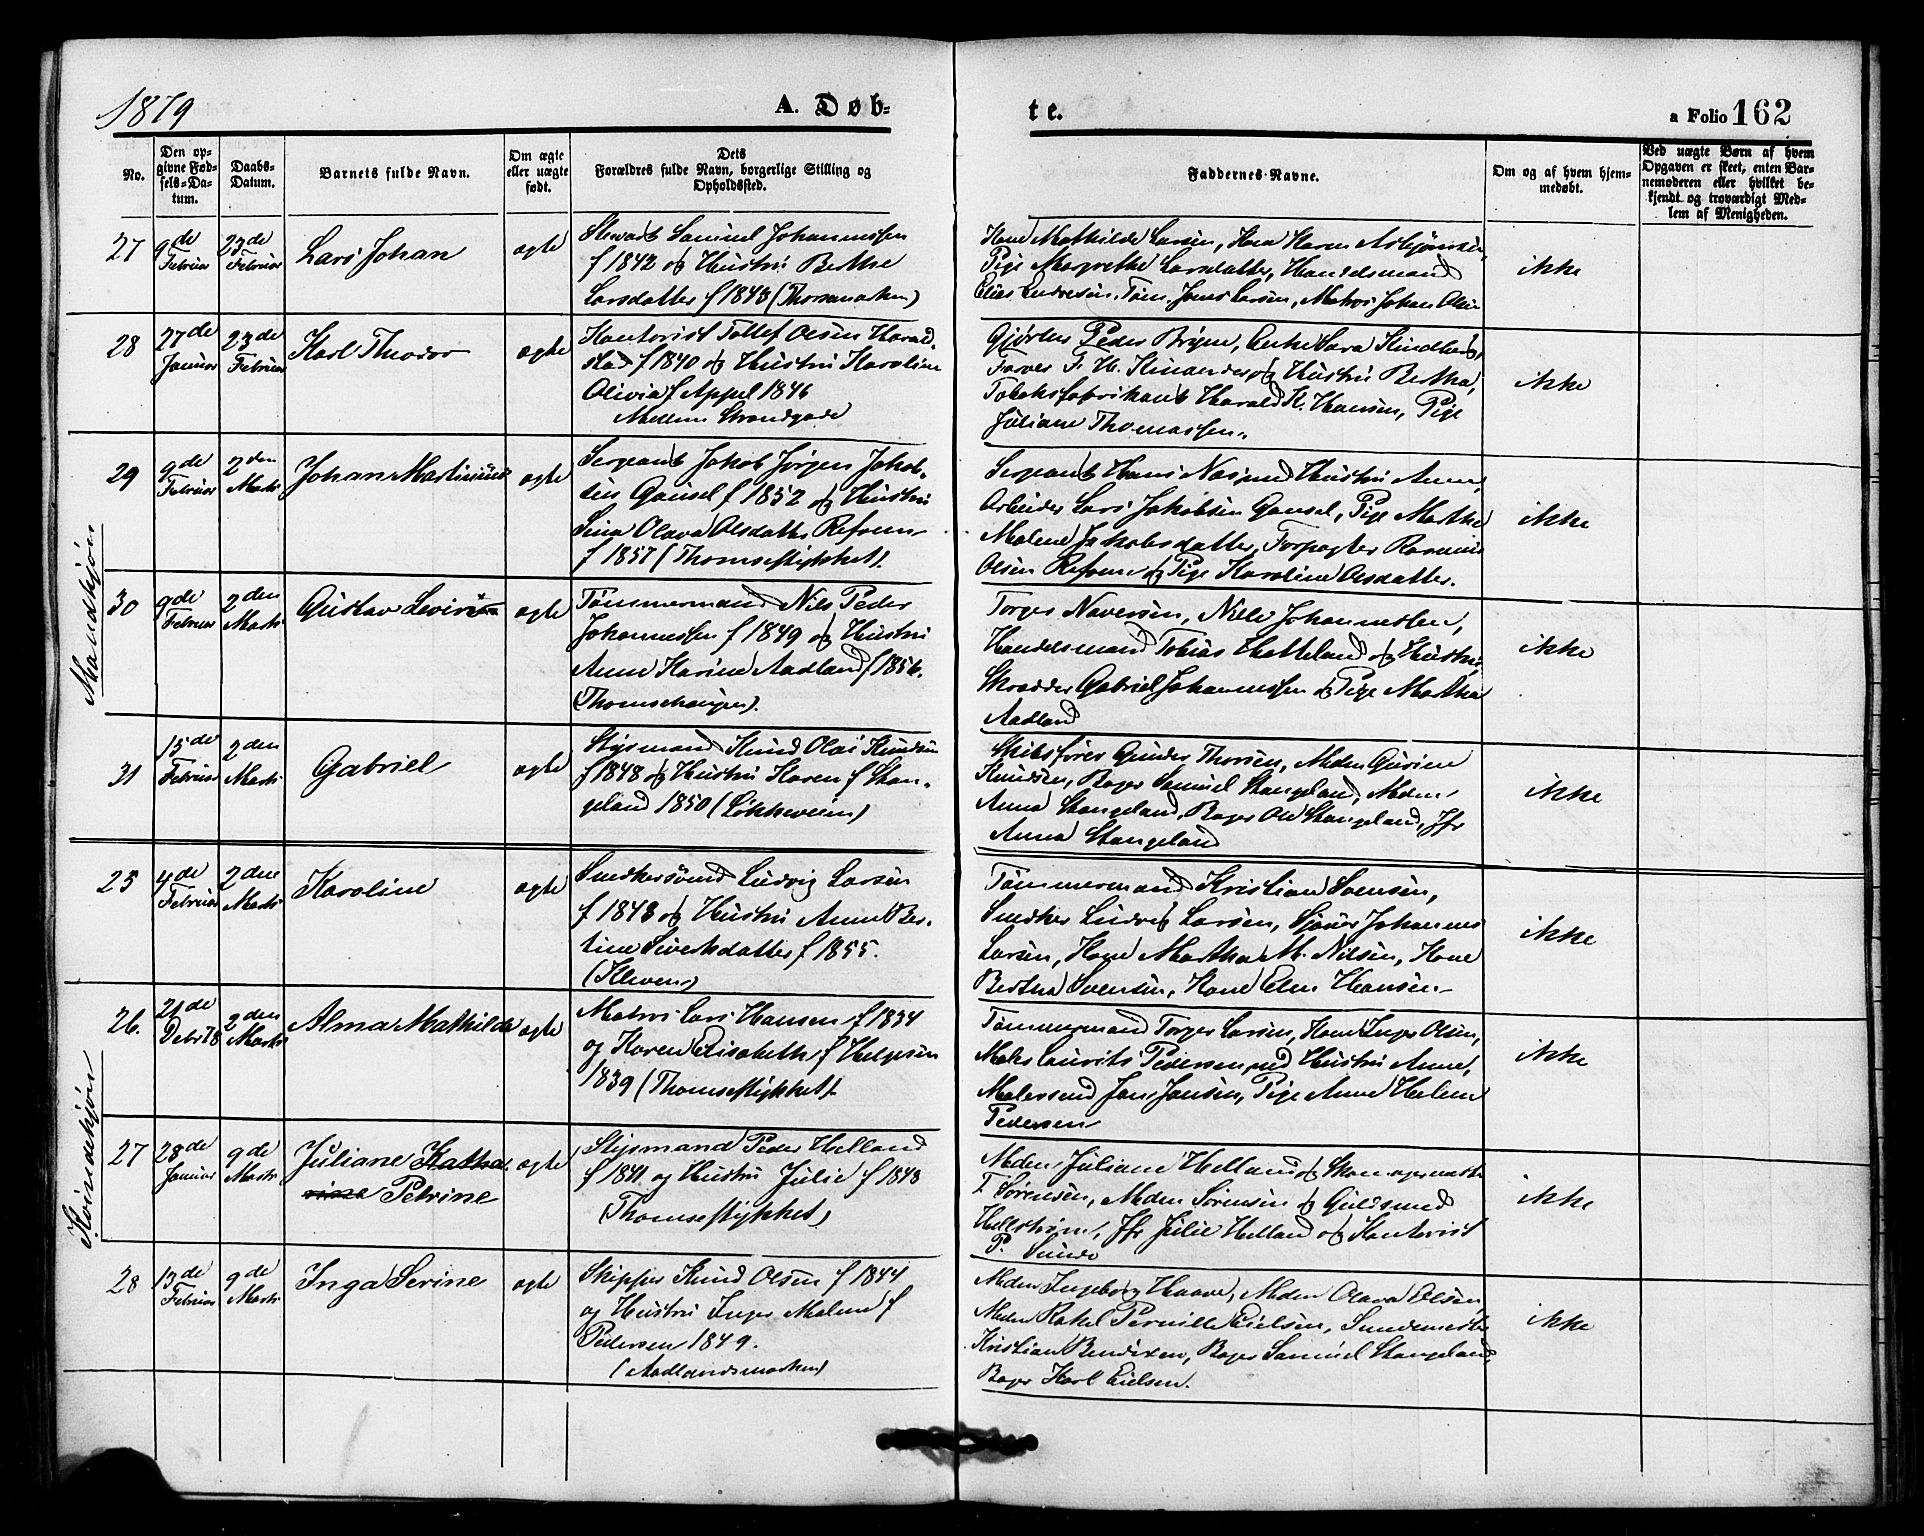 1879
A. Døb-
te.
a Folio 162
No.
Den op-
givne Fød-
sels-Da-
tum.
Daabs-
Datum.
Barnets fulde Navn.
Om ægte
eller uægte
født.
Dets
Forældres fulde Navn, borgerlige Stilling og
Opholdssted.
Faddernes Navne.
Om og af hvem hjem-
medøbt.
Ved uægte Børn af hvem
Opgaven er skeet, enten Bar-
nemoderen eller hvilket be-
kjendt og troværdigt Med-
lem af Menigheden.
Mandkjøn
27
9de
Februar
23de
Februar
Lars Johan
ægte
Stevart Samuel Johannessen
f 1842 og Hustru Berthe
Larsdatter f 1843
Kone Mathilde Larsen, Kone Karen Asbjørnsen,
Pige Margrethe Larsdatter, Handelsmand
Elias Endresen, Tøm. Jonas Larsen, Matros Johan Olsen
ikke
28
27de
Januar
23de
Februar
Karl Theodor
ægte
Kontorist Tollef Olsen Harald-
stad f 1840 og Hustru Karoline
Olivia f Appel 1846
Mellem Strandgade
Gjørtler Peder Bryne, Enke Sara Lindberg,
Farver F. H. Kinander og Hustru Bertha,
Tobaksfabrikant Harald K. Hansen, Pige
Juliane Thomassen.
ikke
29
9de
Februar
2den
Marts
Johan Martinius
ægte
Sergeant Jakob Jørgen Jakob-
sen Gausel f 1852 og Hustru
Sina Olava Olsdatter Refsnes
f 1857 (Thomsestykket).
Sergeant Hans Næs med Hustru Anne,
Arbeider Lars Jakobsen Gausel, Pige Marthe
Malene Jakobsdatter, Forpagter Rasmus
Olsen Refsnes og Pige Karoline Olsdatter.
ikke
30
9de
Februar
2den
Marts
Gustav
ægte
Tømmermand Nils Peder
Johannessen f 1849 og Hustru
Anne Karine Aadland f 1856.
(Thomsehaugen).
Torger Naversen, Niels Johannessen,
Handelsmand Tobias Hetteland og Hustru,
Skrædder Gabriel Johannessen og Pige Martha
Aadland
ikke
31
15de
Februar
2den
Marts
Gabriel
ægte
Styrmand Knud Olai Knudsen
f 1848 og Hustru Karen f Stan-
geland 1850 (Løkkeveien)
Skibsfører Gunder Thorsen, Mdm Gurine
Knudsen, Bager Samuel Stangeland, Mdm
Anna Stangeland, Bager Ole Stangeland, Jfr
Anna Stangeland
ikke
Kvindekjøn
25
4de
Februar
2den
Marts
Karoline
ægte
Snedkersvend Ludvig Larsen
f 1843 og Hustru Anne Ber-
tine Siverksdatter f 1855.
(Kleven)
Tømmermand Kristian Svensen,
Snedker Ludvig Larsen, Sjøuer Johannes
Larsen, Kone Martha M. Nilsen, Kone
Bertha Svensen, Kone Elen Hansen
ikke
26.
21de
Debr 78
2den
Marts
Alma Mathilde
ægte
Matros Lars Hansen f 1834
og Karen Elisabeth f Helgesen
1839 (Thomsestykket).
Tømmermand Torger Larsen, Kone Inger Olsen,
Maler Laurits Pedersen med Hustru Anne,
Malersvend Jens Jansen, Pige Anne Helene
Pedersen
ikke
27
28de
Januar
9de
Marts
Juliane Katha
rine Petrine
ægte
Styrmand Peder Helland
f 1841 og Hustru Julie f 1843
(Thomsestykket)
Mdm Juliane Helland og Skomagermester
T. Sørensen, Mdm Sørensen og Guldsmed
Hellstrøm, Jfr Julie Helland og Kontorist
P. Sunde
ikke
28
13de
Februar
9de
Marts
Inga Serine
ægte
Skipper Knud Olsen f 1844
og Hustru Inger Malene f
Pedersen 1849.
(Aadlandsmarken)
Mdm Ingeborg Haave, Mdm Olava Olsen,
Mdm Rakel Pernille Eielsen,
Kristian Bendixen, Bager Samuel Stangeland,
Bager Karl Eielsen.
ikke